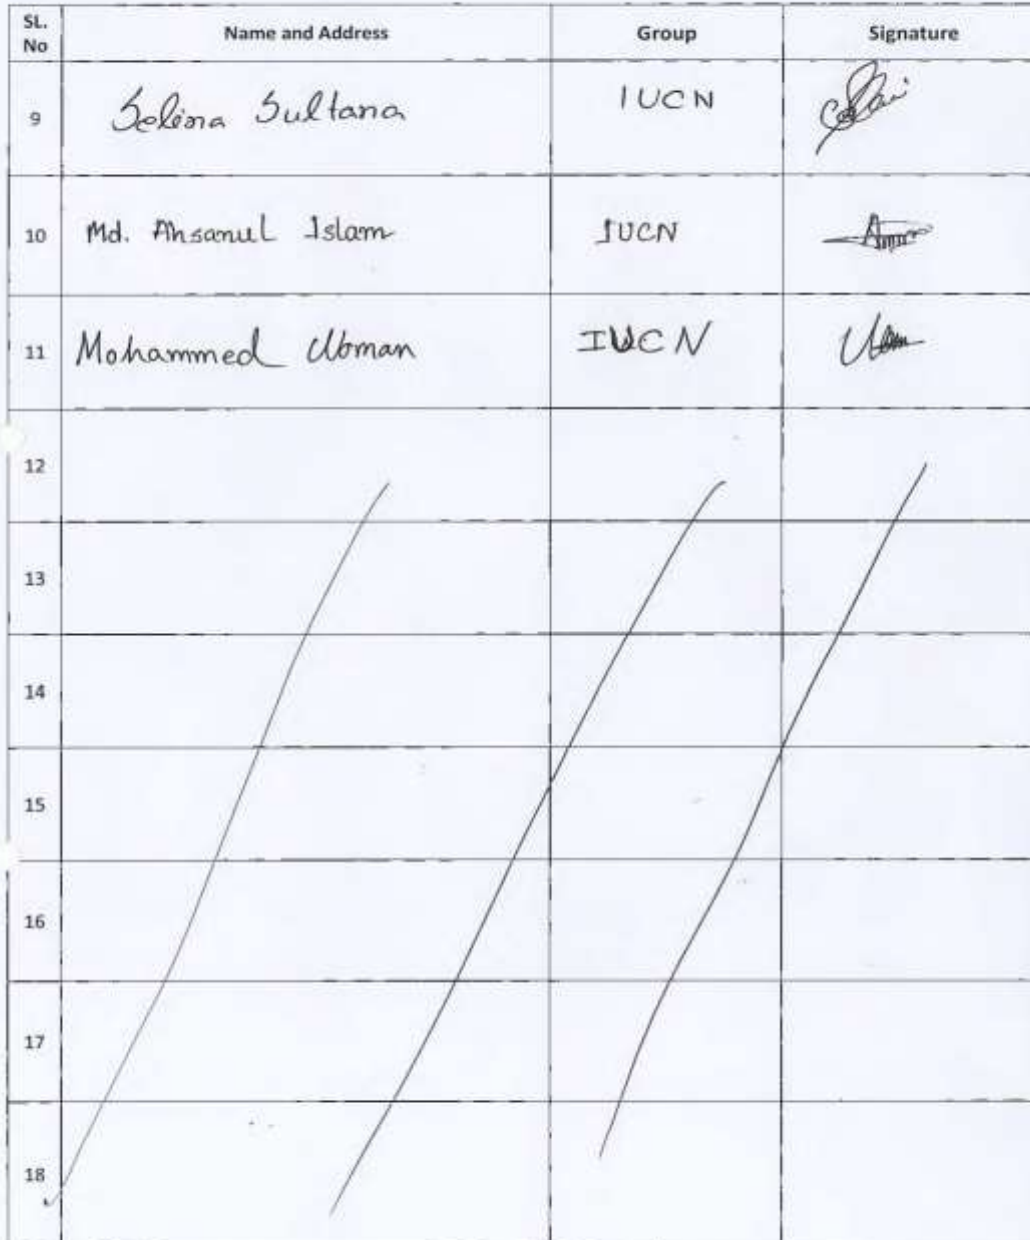 SL. No Name and Address Group Signature
9 Selina Sultana IUCN
10 Md. Ahsanul Islam IUCN
11 Mohammed IUCN
12
13
14
15
16
17
18